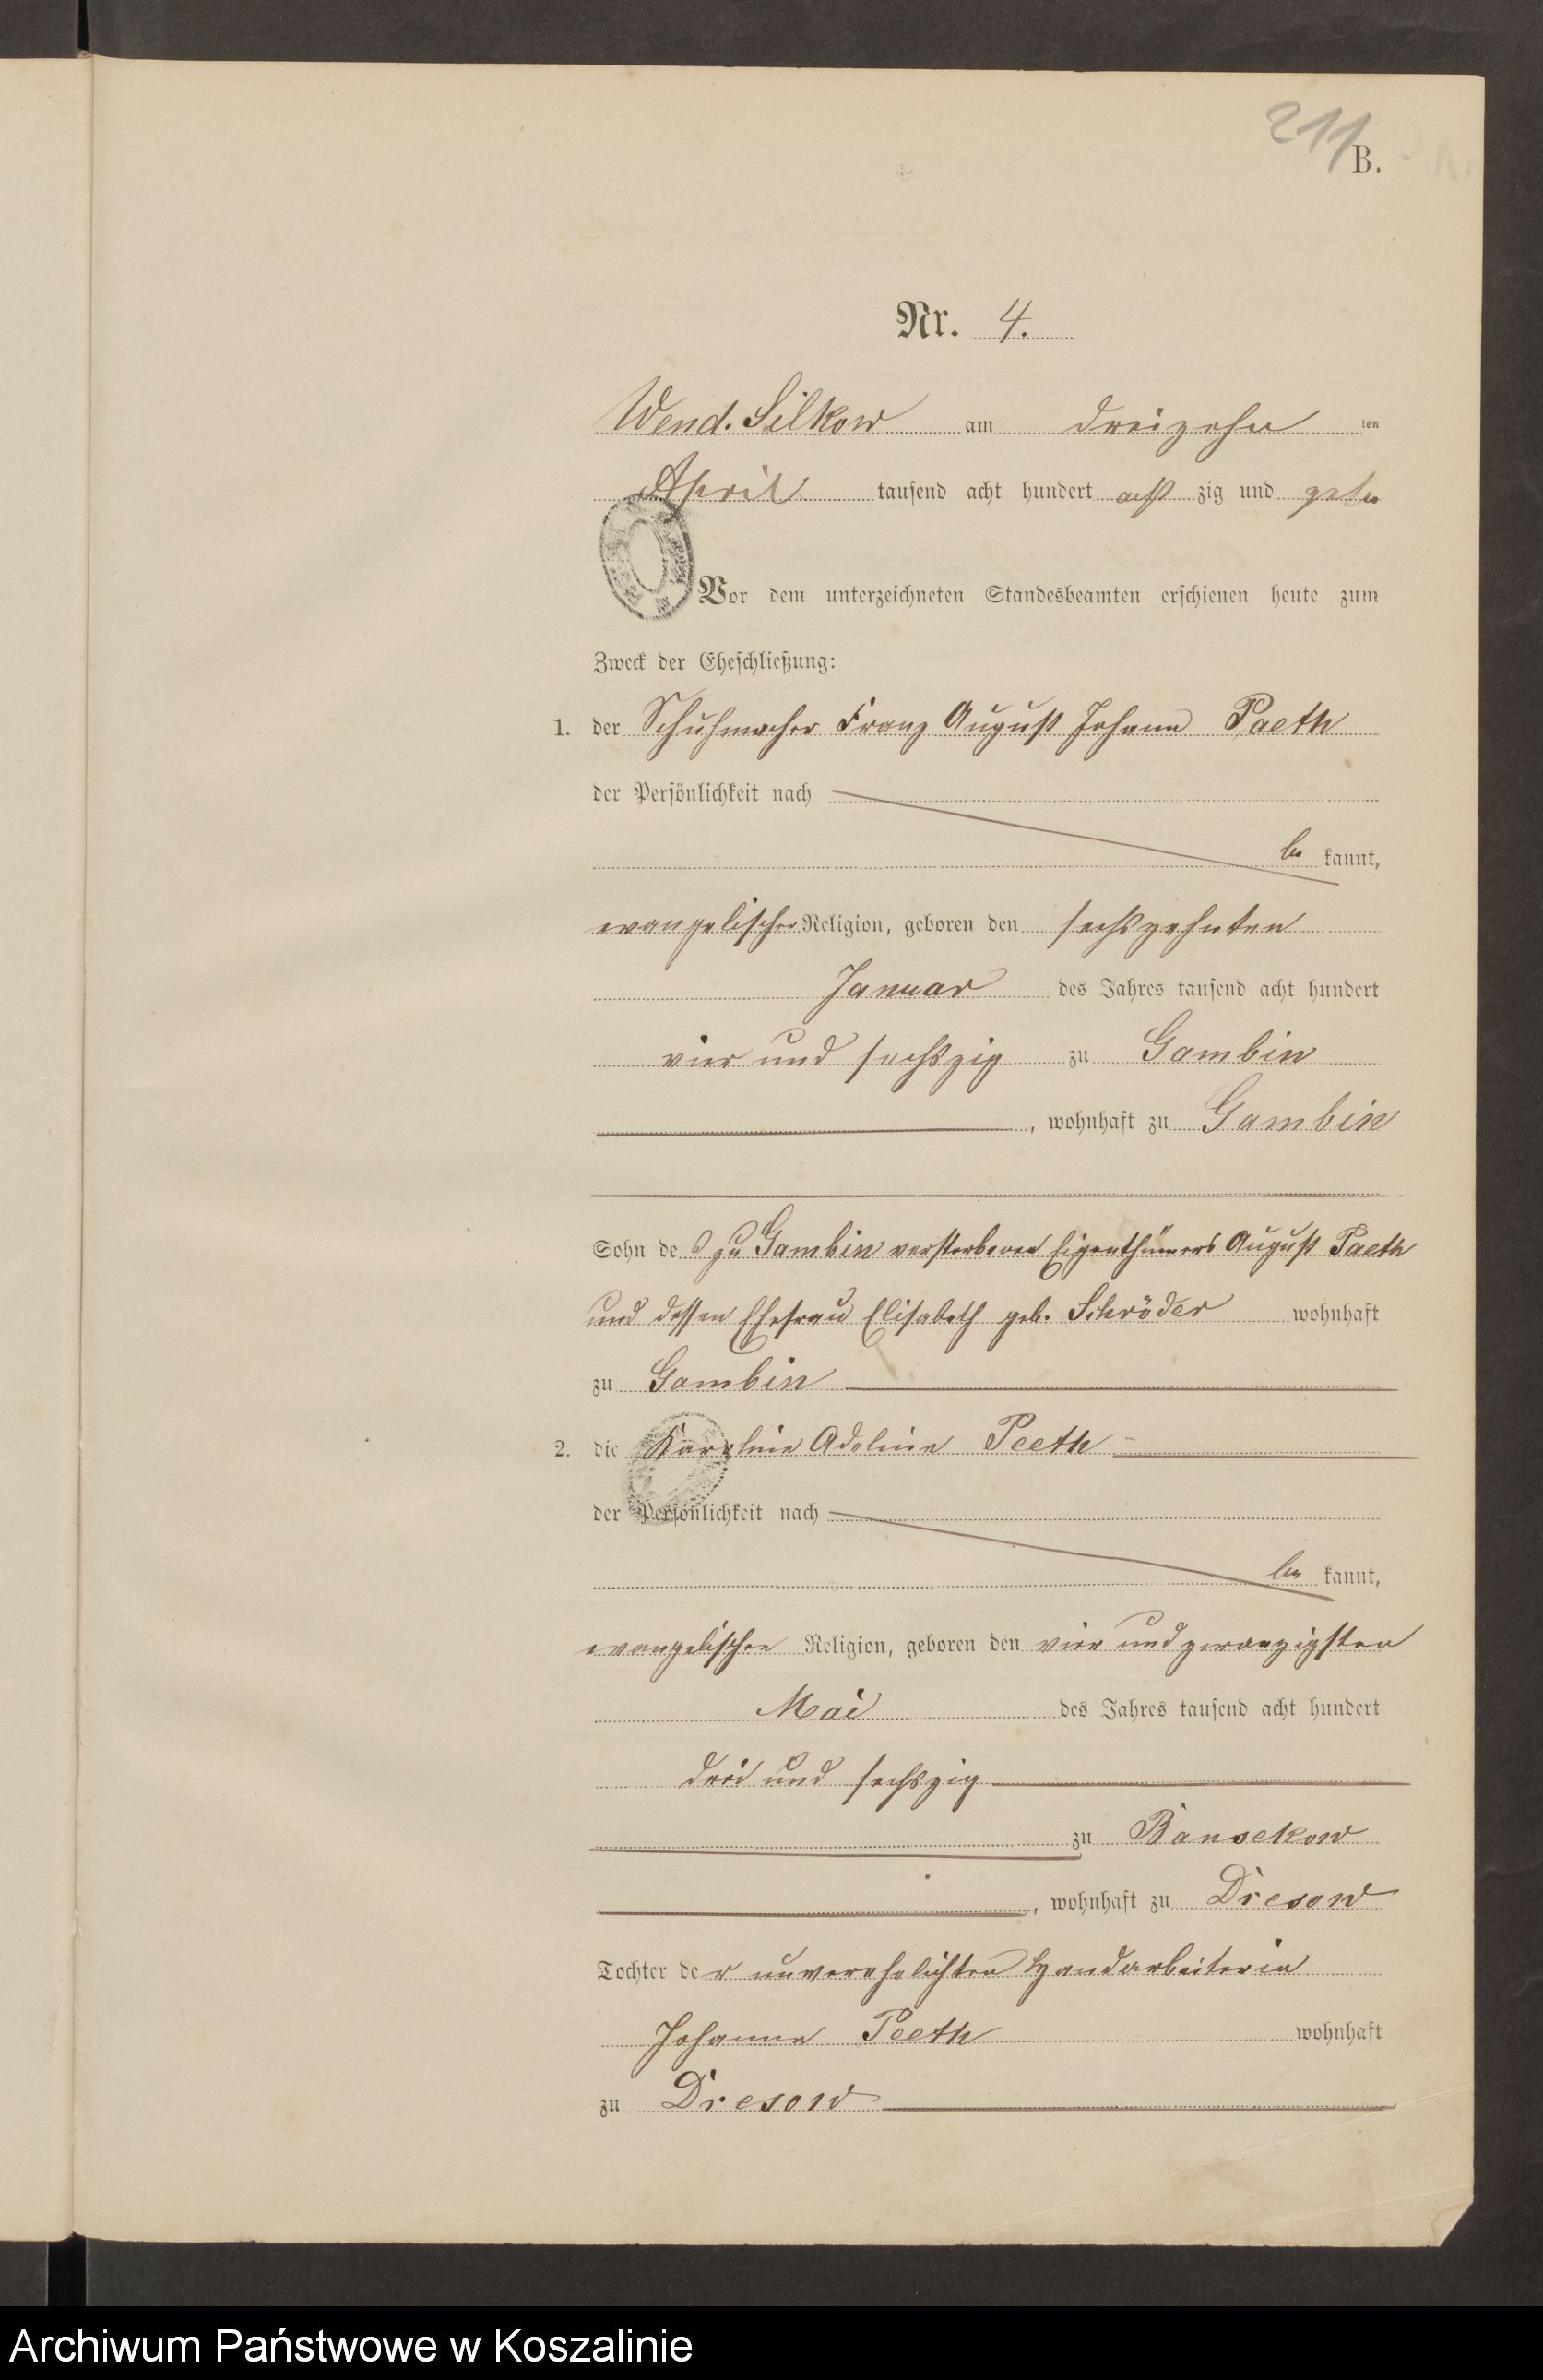 211
B.
Nr. 4.
Wend. Silkow am dreizehn ten
April tausend acht hundert acht zig und zehn
Vor dem unterzeichneten Standesbeamten erschienen heute zum
Zweck der Eheschließung:
1. der Schuhmacher Franz August Johann Paeth
der Persönlichkeit nach
be kannt,
evangelischer Religion, geboren den sechszehnten
Januar des Jahres tausend acht hundert
vier und sechszig zu Gambin
, wohnhaft zu Gambin
Sohn des zu Gambin verstorbenen Eigenthümers August Paeth
und dessen Ehefrau Elisabeth geb. Schröder wohnhaft
zu Gambin
2. die Karoline Adeline Peeth
der Persönlichkeit nach
be kannt,
evangelischen Religion, geboren den vier und zwanzigsten
Mai des Jahres tausend acht hundert
drei und sechszig
zu Bansekow
, wohnhaft zu Dresow
Tochter der unverehelichten Handarbeiterin
Johanne Peeth wohnhaft
zu Dresow
Archiwum Państwowe w Koszalinie